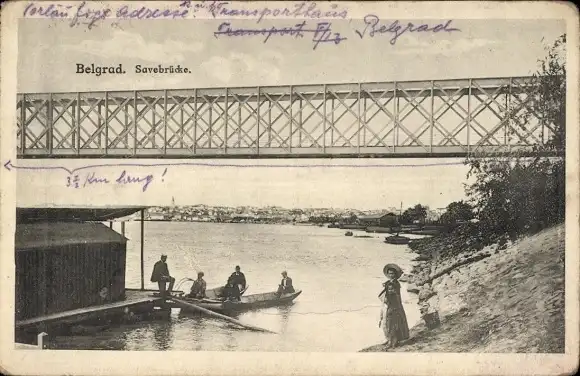 Vorläufige Adresse: k. u. k. Transporthaus
Transport F/13 Belgrad
Belgrad. Savebrücke.
3½ Km lang!